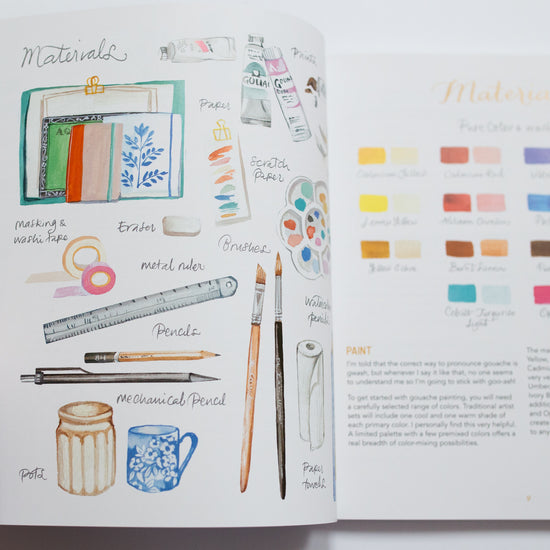 Materials
GOUAC
GOUA
Paints
paper
Scratch
paper
masking &
washi tape
Eraser
Brushes
metal ruler
Pencils
mechanical Pencil
pots
paper
towels
Materia
Pure Color &
Cadmium Yellow
Cadmium Red
Lemon Yellow
Alizarin Crimson
Yellow Ochre
Burnt Sienna
Cobalt Turquoise
Light
PAINT
I'm told that the correct way to pronounce gouache is
gwash, but whenever I say it like that, no one seems
to understand me so I'm going to stick with goo-ash!
To get started with gouache painting, you will need
a carefully selected range of colors. Traditional artist
sets will include one cool and one warm shade of
each primary color. I personally find this very helpful.
A limited palette with a few premixed colors offers a
real breadth of color-mixing possibilities.
The ma
Yellow,
Cadmi
very ve
Umbe
Ivory B
additio
and O
create
to any
9